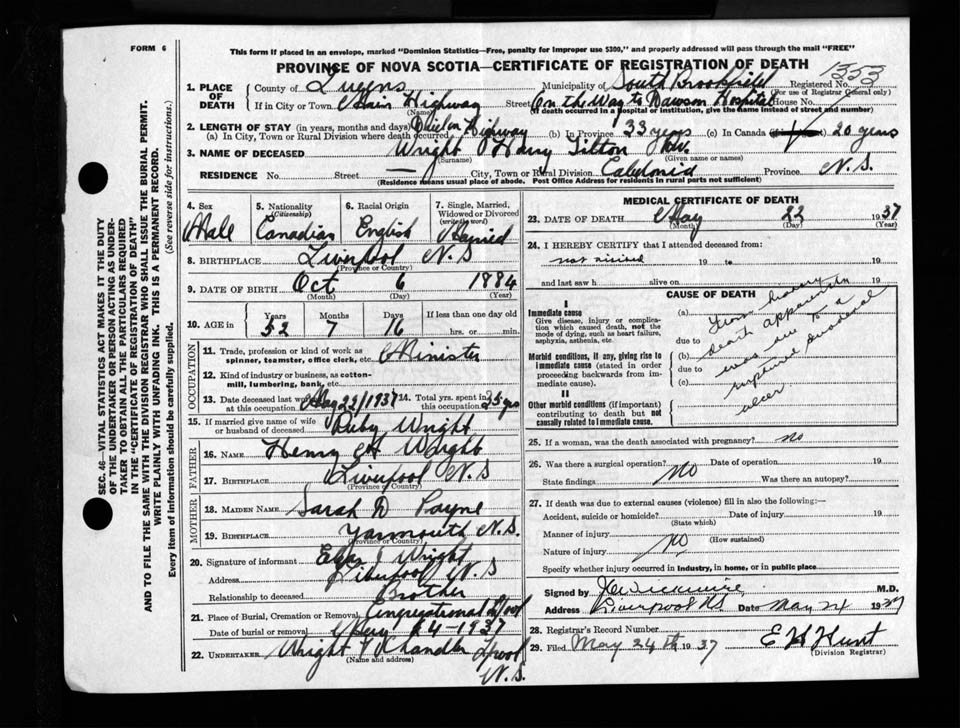 FORM 6
This form if placed in an envelope, marked "Dominion Statistics—Free, penalty for improper use $300," and properly addressed will pass through the mail "FREE"
PROVINCE OF NOVA SCOTIA—CERTIFICATE OF REGISTRATION OF DEATH
1353
1. PLACE OF DEATH
County of Queens Municipality of South Brookfield Registered No.
(For use of Registrar General only)
If in City or Town Main Highway Street On the Way to Dawson Hospital House No.
(Name) (If death occurred in a hospital of institution, give the name instead of street and number)
2. LENGTH OF STAY (in years, months and days)
(a) In City, Town or Rural Division where death occurred Died on Highway (b) In Province 33 years (c) In Canada 20 years
3. NAME OF DECEASED Wright Harry Tilton Rev.
(Surname) (Given name or names)
RESIDENCE No. — Street City, Town or Rural Division Caledonia Province N.S.
(Residence means usual place of abode. Post Office Address for residents in rural parts not sufficient)
4. Sex Male
5. Nationality (Citizenship) Canadian
6. Racial Origin English
7. Single, Married, Widowed or Divorced (write the word) Married
8. BIRTHPLACE Liverpool N.S
(Province or Country)
9. DATE OF BIRTH Oct 6 1884
(Month) (Day) (Year)
10. AGE in Years 52 Months 7 Days 16 If less than one day old hrs. or min.
OCCUPATION
11. Trade, profession or kind of work as spinner, teamster, office clerk, etc. Minister
12. Kind of industry or business, as cotton-mill, lumbering, bank, etc.
13. Date deceased last worked at this occupation May 22/1937 14. Total yrs. spent in this occupation 25 yrs
15. If married give name of wife or husband of deceased Ruby Wright
FATHER
16. NAME Henry H Wright
17. BIRTHPLACE Liverpool N.S
(Province or Country)
MOTHER
18. MAIDEN NAME Sarah N Payne
19. BIRTHPLACE Yarmouth N.S.
(Province or Country)
20. Signature of informant Wright
Address Liverpool N.S
Relationship to deceased Brother
21. Place of Burial, Cremation or Removal Congregational L'pool
Date of burial or removal May 24-1937
22. UNDERTAKER Wright & Chandler L'pool N.S.
(Name and address)
MEDICAL CERTIFICATE OF DEATH
23. DATE OF DEATH May 22 1937
(Month) (Day) (Year)
24. I HEREBY CERTIFY that I attended deceased from:
not viewed 19 to 19
and last saw h alive on 19
CAUSE OF DEATH
I
Immediate cause
Give disease, injury or complication which caused death, not the mode of dying, such as heart failure, asphyxia, asthenia, etc.
Morbid conditions, if any, giving rise to immediate cause (stated in order proceeding backwards from immediate cause).
II
Other morbid conditions (if important) contributing to death but not causally related to immediate cause.
(a) From history
due to death apparently
(b) was due to a
due to ruptured duodenal
(c) ulcer
25. If a woman, was the death associated with pregnancy? no
26. Was there a surgical operation? No Date of operation 19
State findings Was there an autopsy?
27. If death was due to external causes (violence) fill in also the following:—
Accident, suicide or homicide? Date of injury 19
(State which)
Manner of injury No
(How sustained)
Nature of injury
Specify whether injury occurred in industry, in home, or in public place
Signed by J C Wickwire M.D.
Address Liverpool NS Date May 24 1937
28. Registrar's Record Number
29. Filed May 24th 1937 E H Hunt
(Division Registrar)
SEC. 46—VITAL STATISTICS ACT MAKES IT THE DUTY OF THE UNDERTAKER OR PERSON ACTING AS UNDERTAKER TO OBTAIN ALL THE PARTICULARS REQUIRED IN THE "CERTIFICATE OF REGISTRATION OF DEATH" AND TO FILE THE SAME WITH THE DIVISION REGISTRAR WHO SHALL ISSUE THE BURIAL PERMIT.
WRITE PLAINLY WITH UNFADING INK. THIS IS A PERMANENT RECORD.
Every item of information should be carefully supplied. (See reverse side for instructions.)